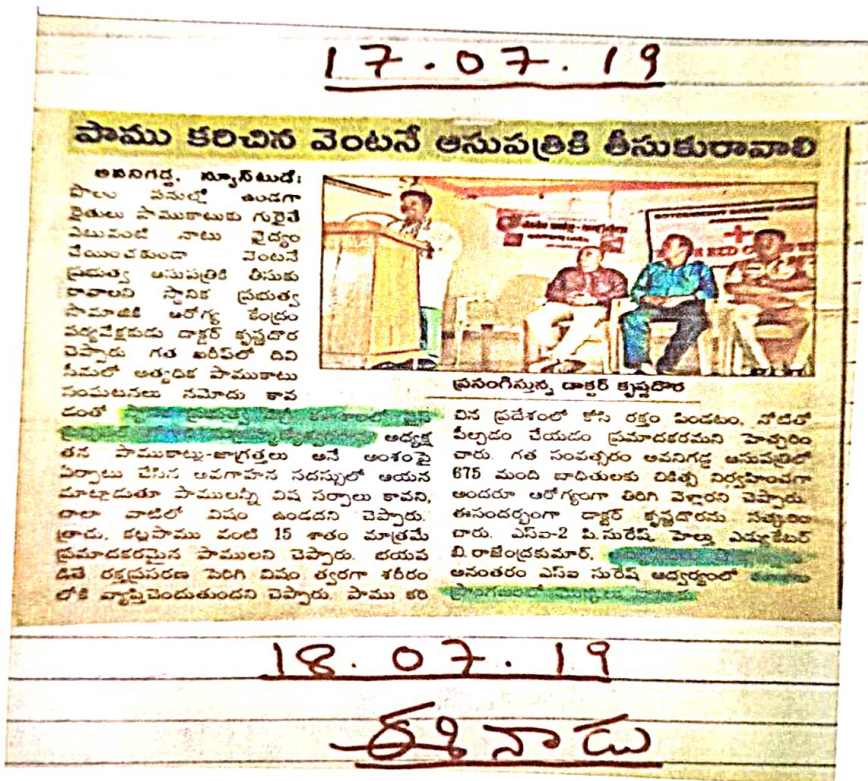 17.07.19
పాము కరిచిన వెంటనే ఆసుపత్రికి తీసుకురావాలి
అవనిగడ్డ, న్యూస్‌టుడే:
పొలం పనుల్లో ఉండగా
రైతులు పాముకాటుకు గురైతే
ఎటువంటి నాటు వైద్యం
చేయించకుండా వెంటనే
ప్రభుత్వ ఆసుపత్రికి తీసుకు
రావాలని స్థానిక ప్రభుత్వ
సామాజిక ఆరోగ్య కేంద్రం
పర్యవేక్షకుడు డాక్టర్ కృష్ణదొర
చెప్పారు. గత ఖరీఫ్‌లో దివి
సీమలో అత్యధిక పాముకాటు
సంఘటనలు నమోదు కావ
డంతో
అధ్యక్ష
తన పాముకాటు-జాగ్రత్తలు అనే అంశంపై
ఏర్పాటు చేసిన అవగాహన సదస్సులో ఆయన
మాట్లాడుతూ పాములన్నీ విష సర్పాలు కావని,
చాలా వాటిలో విషం ఉండదని చెప్పారు.
త్రాచు, కట్లపాము వంటి 15 శాతం మాత్రమే
ప్రమాదకరమైన పాములని చెప్పారు. భయప
డితే రక్తప్రసరణ పెరిగి విషం త్వరగా శరీరం
లోకి వ్యాప్తిచెందుతుందని చెప్పారు. పాము కరి
ప్రసంగిస్తున్న డాక్టర్ కృష్ణదొర
చిన ప్రదేశంలో కోసి రక్తం పిండటం, నోటితో
పీల్చడం చేయడం ప్రమాదకరమని హెచ్చరిం
చారు. గత సంవత్సరం అవనిగడ్డ ఆసుపత్రిలో
675 మంది బాధితులకు చికిత్స నిర్వహించగా
అందరూ ఆరోగ్యంగా తిరిగి వెళ్లారని చెప్పారు.
ఈసందర్భంగా డాక్టర్ కృష్ణదొరను సత్కరిం
చారు. ఎస్ఐ-2 పి.సురేష్, హెల్త్ ఎడ్యుకేటర్
బి.రాజేంద్రకుమార్,
అనంతరం ఎస్ఐ సురేష్ ఆధ్వర్యంలో
18.07.19
ఈనాడు